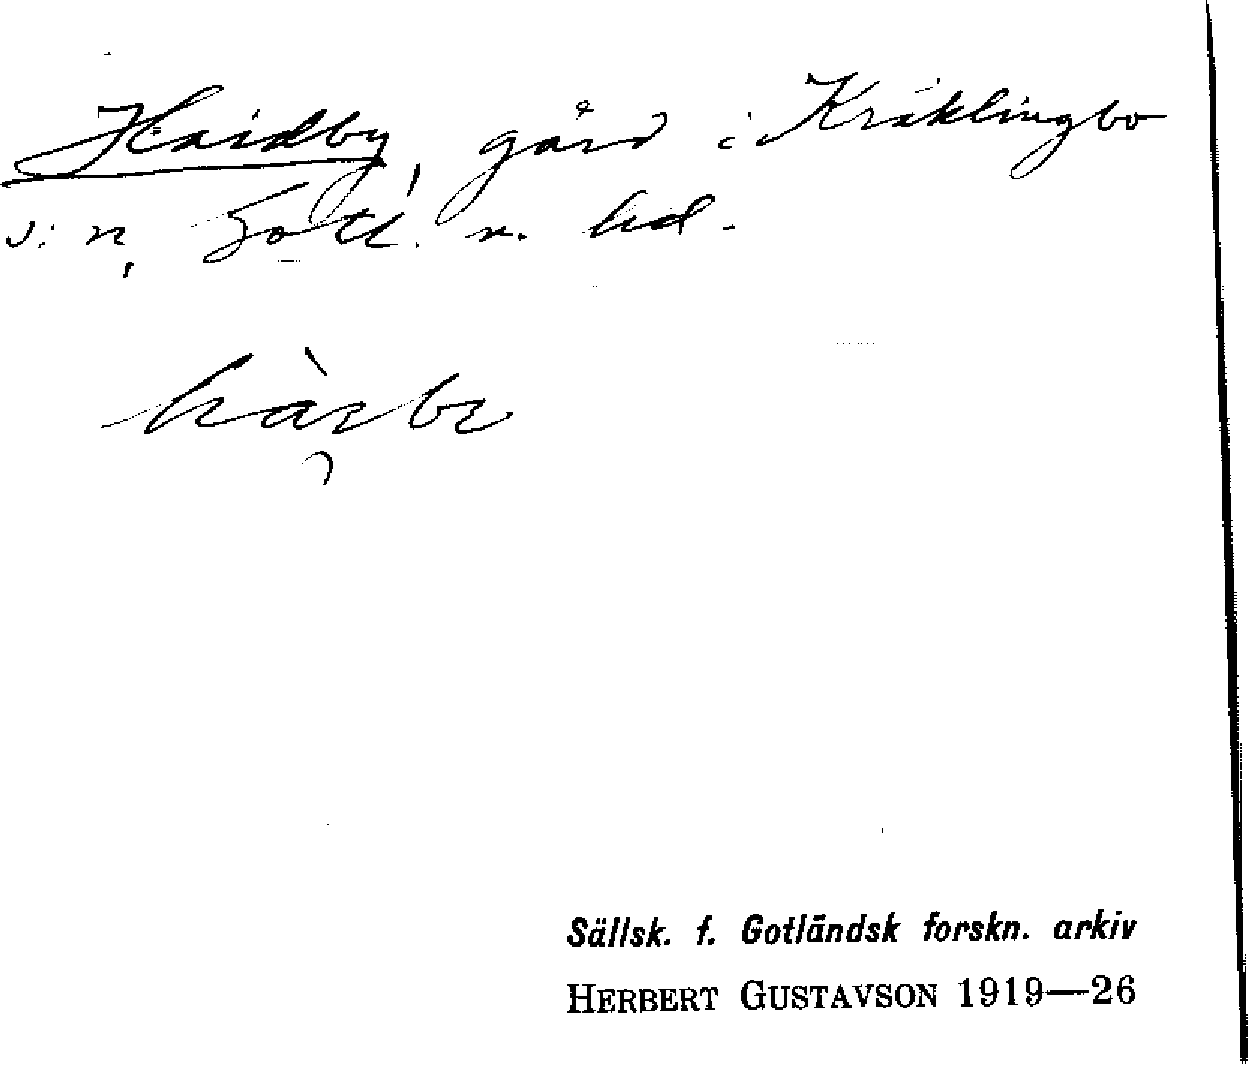 Haidby, gård i Kräklingbo
s:n, Gotl. n. hd.
Sällsk. f. Gotländsk forskn. arkiv
HERBERT GUSTAVSON 1919—26